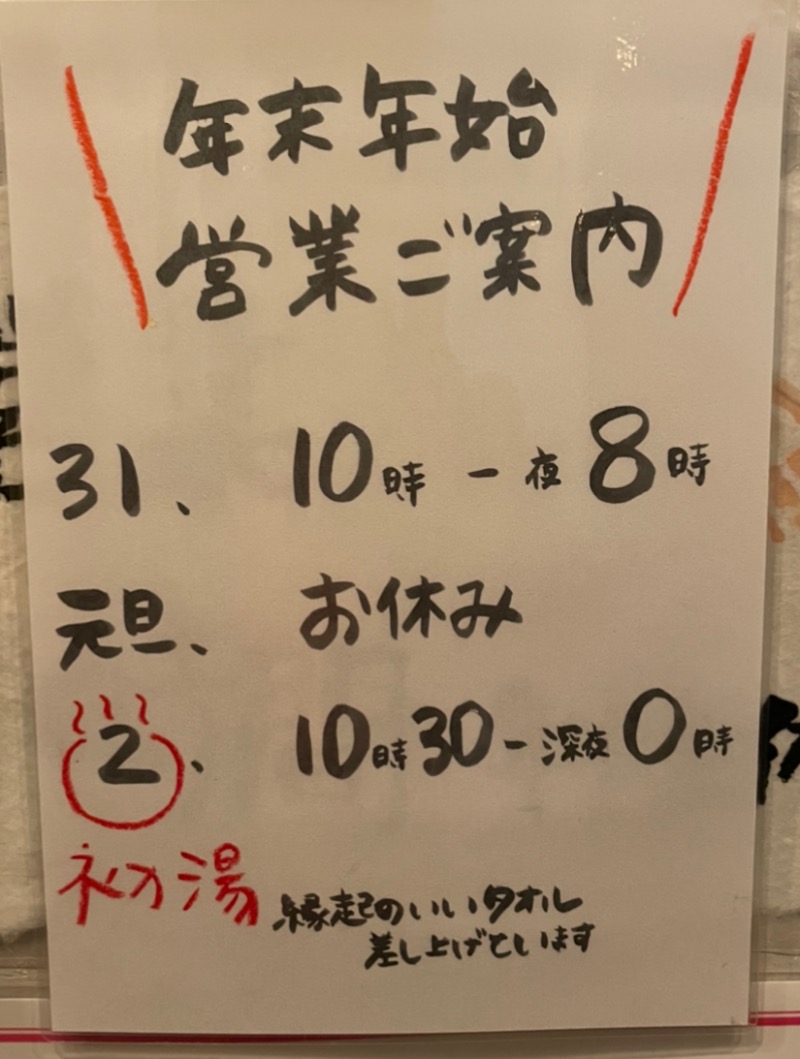 年末年始
営業ご案内
31、 10時 - 夜8時
元旦、 お休み
2、 10時30 - 深夜0時
初湯 縁起のいいタオル
差し上げています